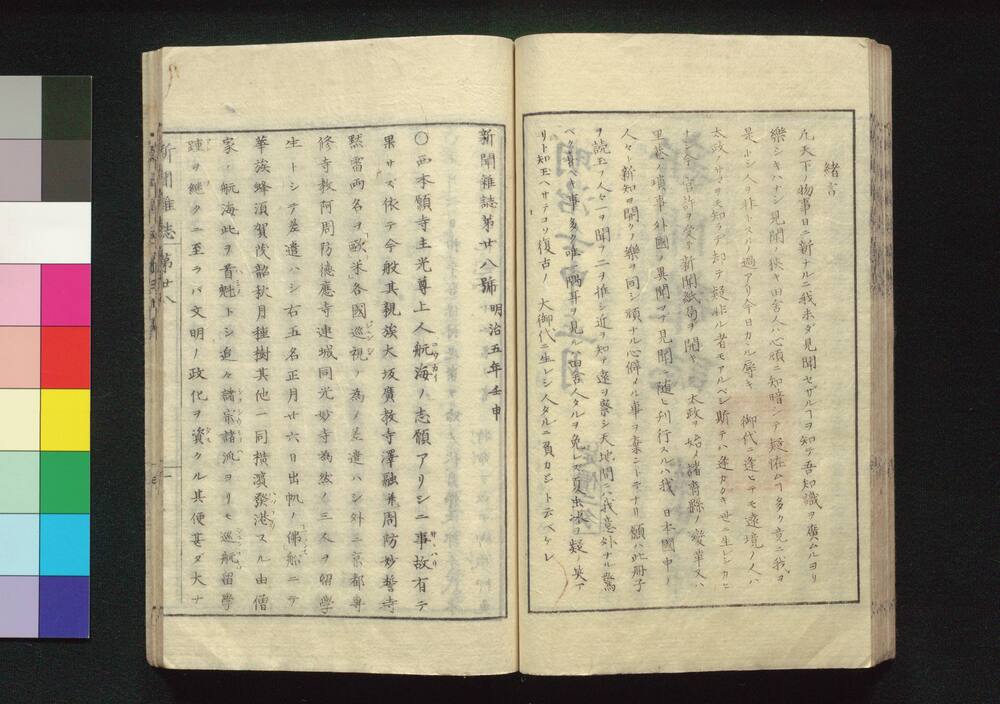 緒言
凡天下ノ物事日ニ新ナルニ我未ダ見聞セザルヿヲ知テ吾知識ヲ廣ムルヨリ
樂シキハナシ見聞ノ狹キ田舎人ハ心頑ニ知暗シテ疑惟ムヿ多ク竟ニ我ヲ
是トシ人ヲ非トスルノ過アリ今日カヽル辱キ 御代ニ逢ヒテモ遠境ノ人ハ
太政ノサマヲモ知ラデ却テ疑非ル者モアルベシ斯テハ逢ガタキ世ニ生レシカヒ
ナシ今官許ヲ受ケ新聞紙局ヲ開キ 太政ヲ始メ諸府縣ノ變革又ハ
里巷ノ瑣事外國ノ異聞マデ見聞ニ隨ヒ刊行スルハ我 日本國中ノ
人々ト新知ヲ開クノ樂ヲ同シ頑ナル心僻メル事ヲ棄ントナリ願ハ此冊子
ヲ讀玉フ人々一ヲ聞テ二ヲ推シ近ヲ知テ遠ヲ察シ天地間ニハ我意外ナル驚
ベク喜ベキ事多ク唯一隅耳ヲ見ル田舎人タルヲ免レ夏虫ノ冰ヲ疑ノ笑ヲ
リト知玉ヘサテコソ復古ノ 大御代ニ生レシ人タルニ負カズト云ベケレ
新聞雜誌第廿八號 明治五年壬申
〇西本願寺主光尊上人航海ノ志願アリシニ事故有テ
果サズ依テ今般其親族大坂廣教寺澤融并周防妙誓寺
黙雷両名ヲ歐米各國巡視ノ爲メ差遣ハシ外ニ京都專
修寺教阿周防德應寺連城同光妙寺爲然ノ三人ヲ留學
生トシテ差遣ハシ右五名正月廿六日出帆ノ佛船ニテ
華族蜂須賀茂韶秋月種樹其他一同横濱發港スル由僧
家ノ航海此ヲ首魁トシ追々諸宗諸派ヨリモ巡航留學
踵ヲ繼クニ至ラバ文明ノ政化ヲ資クル其便甚ダ大ナ
新聞雜誌第廿八